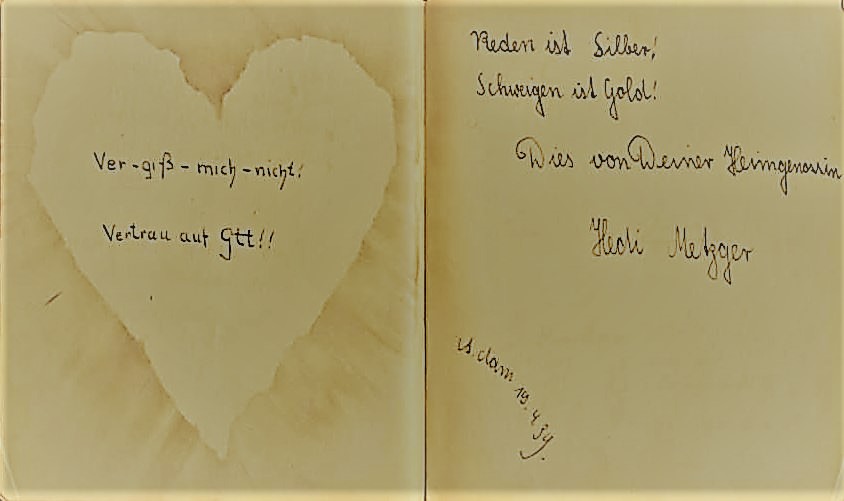 Ver-giß-mich-nicht!
Vertrau auf Gtt!!
Reden ist Silber!
Schweigen ist Gold!
Dies von Deiner Heimgenossin
Hedi Metzger
19.4.39.